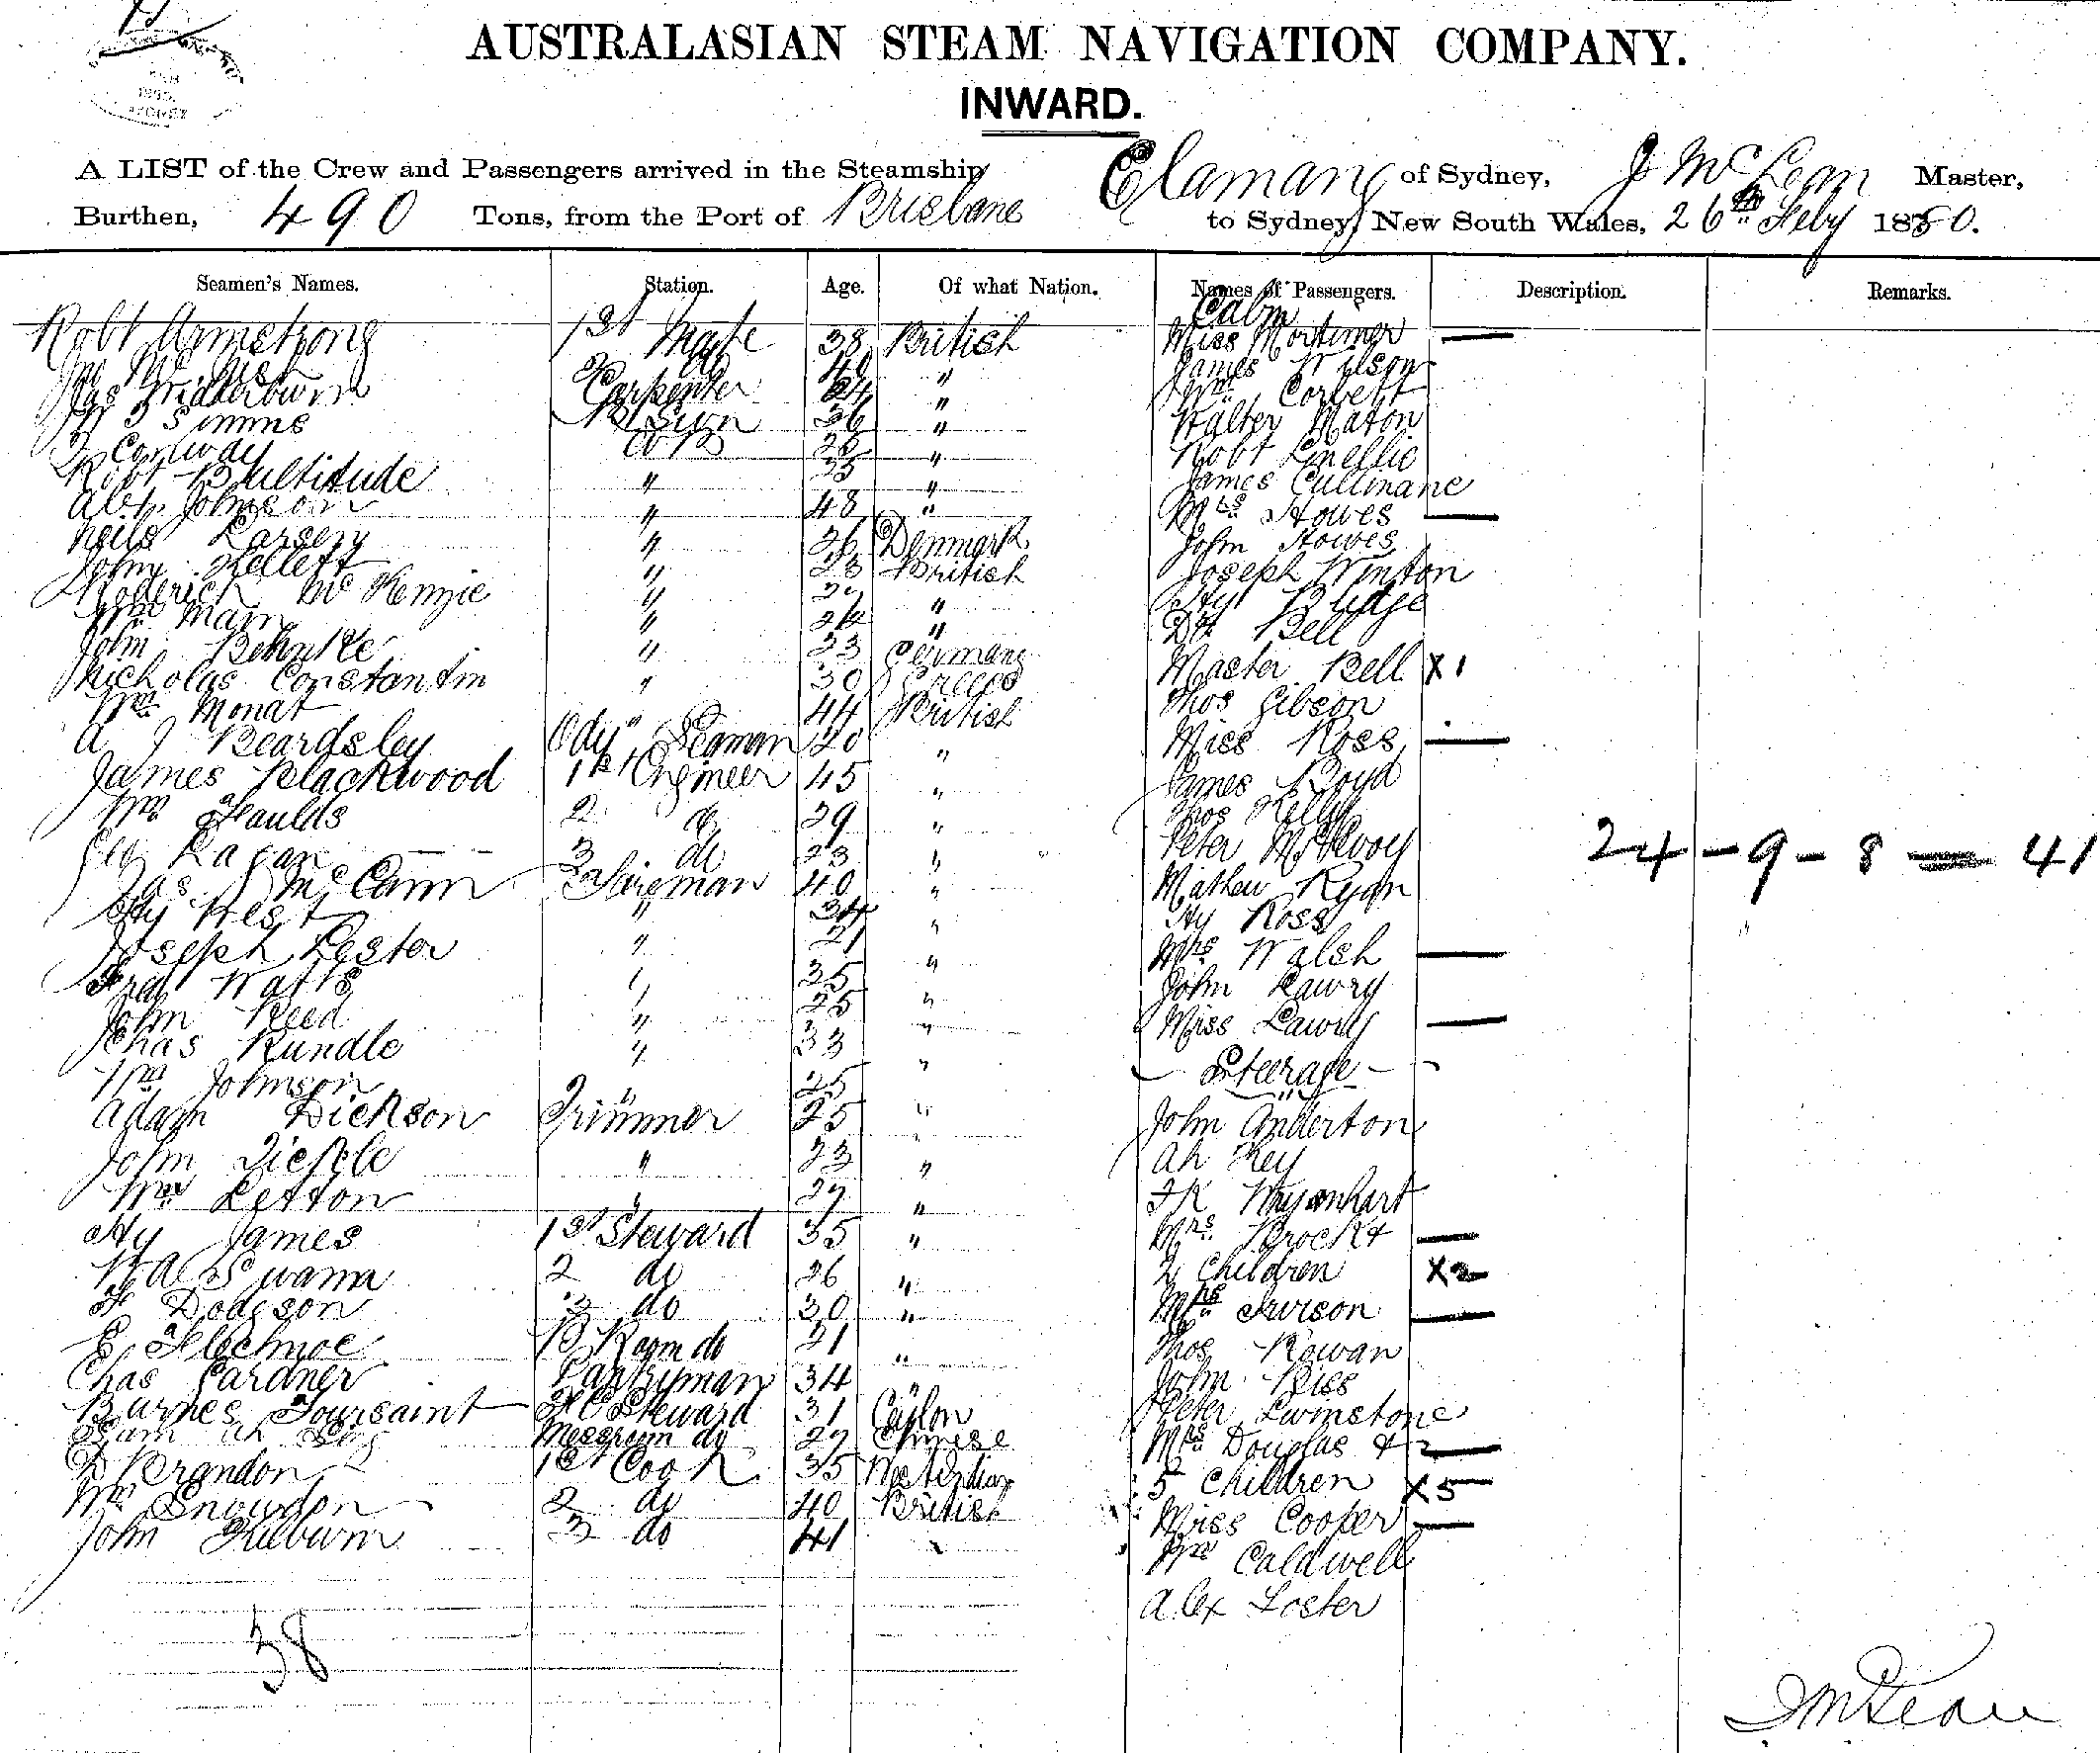 AUSTRALASIAN STEAM NAVIGATION COMPANY.
INWARD.
A LIST of the Crew and Passengers arrived in the Steamship Elamang of Sydney, J McLean Master,
Burthen, 490 Tons, from the Port of Brisbane to Sydney, New South Wales, 26th Feby 1880.
Seamen's Names. Station. Age. Of what Nation. Names of Passengers. Description. Remarks.
Cabin
Robt Armstrong 1st Mate 38 British Miss Mortimer —
2 do 40 " James Wilson
Jas Widderburn Carpenter 24 " Wm Corbett
W J Simms 36 " Walter Maton
J Conway AB 28 " Robt
Robt Bultitude " 35 " James Cullinane
Alex Johnson " 48 " Mrs Howes —
Neils Larsen " 26 Denmark John Howes
John Kellett " 28 British Joseph Winton
Roderick McKenzie " 27 " Hy Budge
Wm Mann " 24 " Dr Bell
John Behnke " 33 Germany Master Bell X1
Nicholas Constantin " 30 Greece Thos Gibson
Wm Monat " 44 British Miss Ross —
A J Beardsley Ody Seaman 20 " James Boyd
James Blackwood 1st Engineer 45 " Thos Kelly
Wm Faulds 2 do 29 " Peter McEvoy
Geo Ragan 3 do 23 " Mathew Ryan 24 - 9 - 8 = 41
Jas McCann Fireman 40 " Hy Ross
Hy West " 34 " Mrs Walsh —
Joseph Lester " 21 " John Lawry
Fred Watts " 35 " Miss Lawry —
John Reed " 25 " Steerage
Chas Rundle " 33 " John Anderton
Wm Johnson " 25 " Ah Key
Adam Dickson Trimmer 25 " J K
John Tickle " 23 " Mrs Brock & —
Wm Letton " 27 " 2 Children X2
Hy James 1st Steward 35 " Mrs Iwison —
2 do 26 " Thos Rowan
F Dodgson 3 do 30 " John Biss
E B Room do 21 " Peter Livinstone
Chas Gardner Pantryman 34 " Mrs Douglas & 2 —
Barnes Toursaint F C Steward 31 Ceylon 5 Children X5
Sam Ah Messroom do 27 Chinese Miss Cooper —
D Brandon 1st Cook 35 West Indian Wm Caldwell
Wm Snowdon 2 do 40 British Alex Foster
John Gilburn 3 do 41 "
38
J McLean